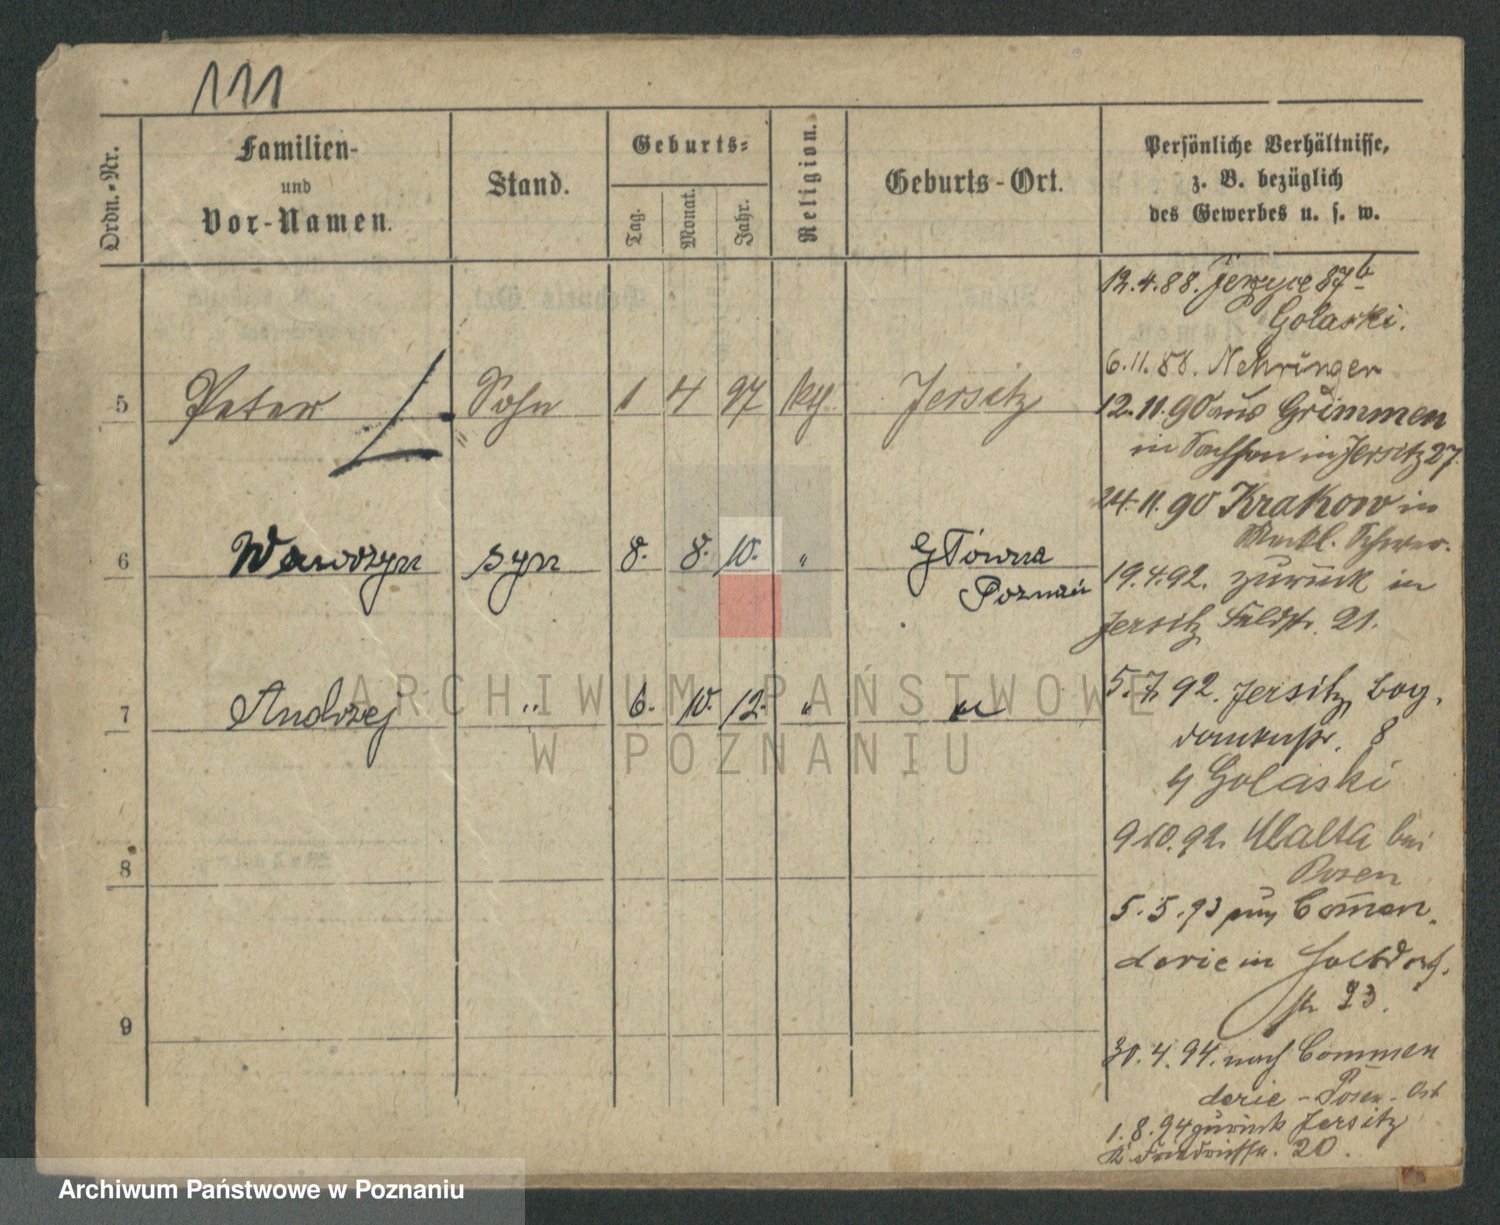 111
Ordn.-Nr.
Familien-
und
Vor-Namen.
Stand.
Geburts-
Tag.
Monat.
Jahr.
Religion.
Geburts-Ort.
Persönliche Verhältnisse,
z. B. bezüglich
des Gewerbes u. s. w.
12.4.88. Jerzyce 87b
Golaski.
6.11.88. Nehringer
5 Peter Sohn 1 4 97 Jersitz
12.11.90 aus Grimmen
in Sachsen in Jersitz 27.
24.11.90 Krakow in
Meckl. Schwer.
6 Wawrzyn syn 8. 8. 10. " Główna
Poznań
19.4.92. zurück in
Jersitz Feldstr. 21.
7 Andrzej " 6. 10. 12. " "
5.7.92. Jersitz, Bog.
dankastr. 8
b/ Golaski
9.10.92. Malta bei
Posen
8
5.5.93 Comen.
derie in
str 23.
9
30.4.94. nach Commen
derie - Posen - Ost
1.8.94 zurück Jersitz
20.
ARCHIWUM PAŃSTWOWE
W POZNANIU
Archiwum Państwowe w Poznaniu